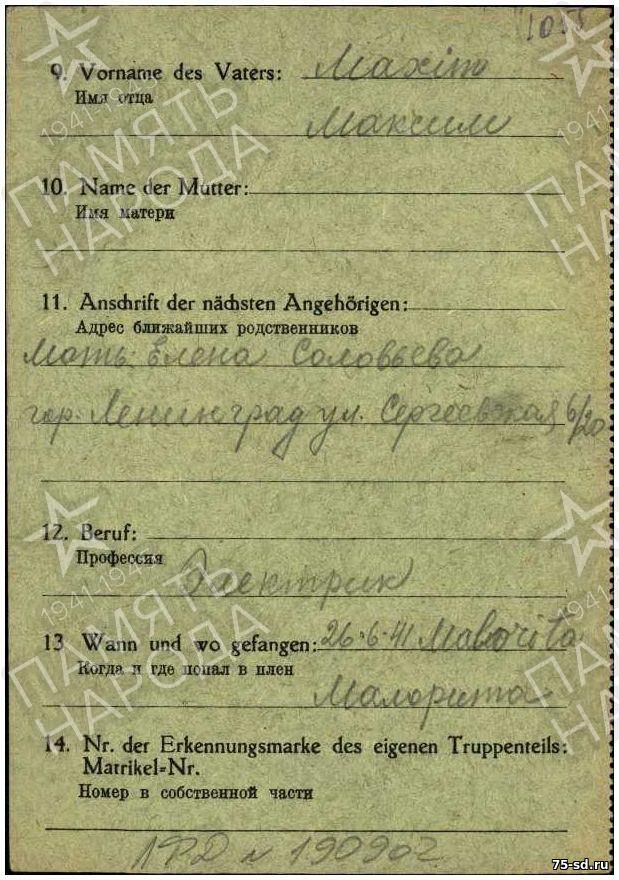 9. Vorname des Vaters: Maxim
Имя отца
Максим
10. Name der Mutter:
Имя матери
11. Anschrift der nächsten Angehörigen:
Адрес ближайших родственников
Мать: Елена Соловьева
гор. Ленинград ул. Сергеевская 6/20
12. Beruf:
Профессия
Электрик
13 Wann und wo gefangen: 26.6.41 Maborita
Когда и где попал в плен
Малорита
14. Nr. der Erkennungsmarke des eigenen Truppenteils:
Matrikel=Nr.
Номер в собственной части
190902
75-sd.ru
1941-1945
ПАМЯТЬ
НАРОДА